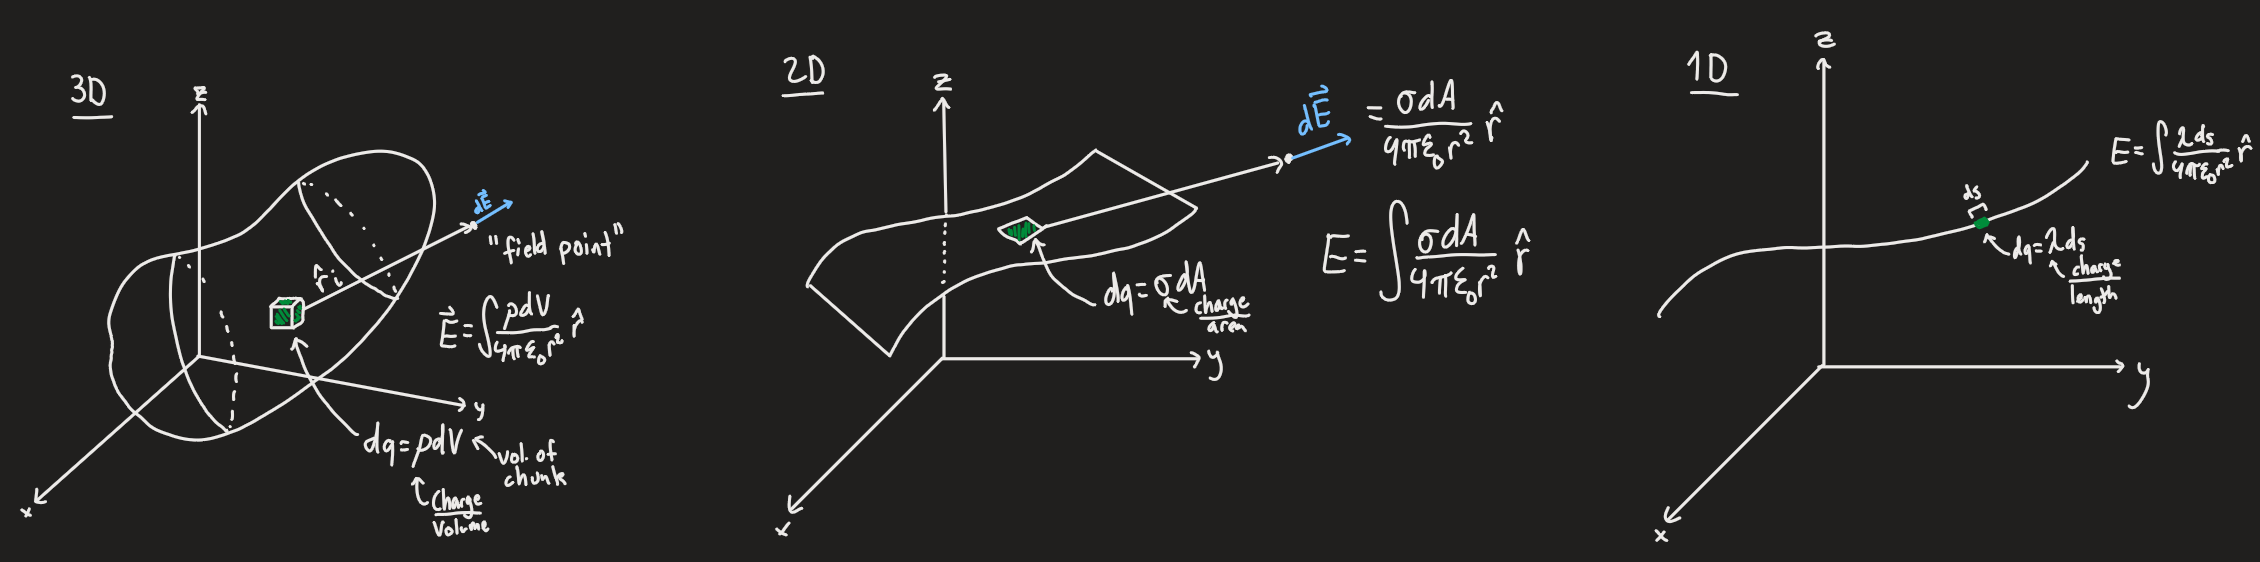 3D
z
dE⃗
"field point"
r̂ i
E⃗ = ∫ ρdV / 4πε₀r² r̂
y
dq = ρdV
vol. of
chunk
charge / volume
x
2D
z
dE⃗ = σdA / 4πε₀r² r̂
E = ∫ σdA / 4πε₀r² r̂
dq = σdA
charge / area
y
x
1D
z
E = ∫ λds / 4πε₀r² r̂
ds
dq = λds
charge / length
y
x